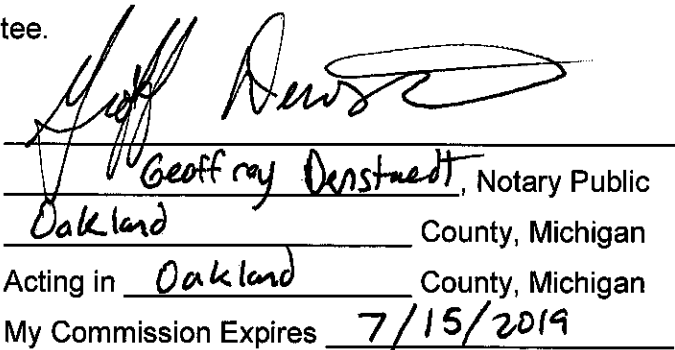 tee.
Geoffrey Denstaedt, Notary Public
Oakland County, Michigan
Acting in Oakland County, Michigan
My Commission Expires 7/15/2019